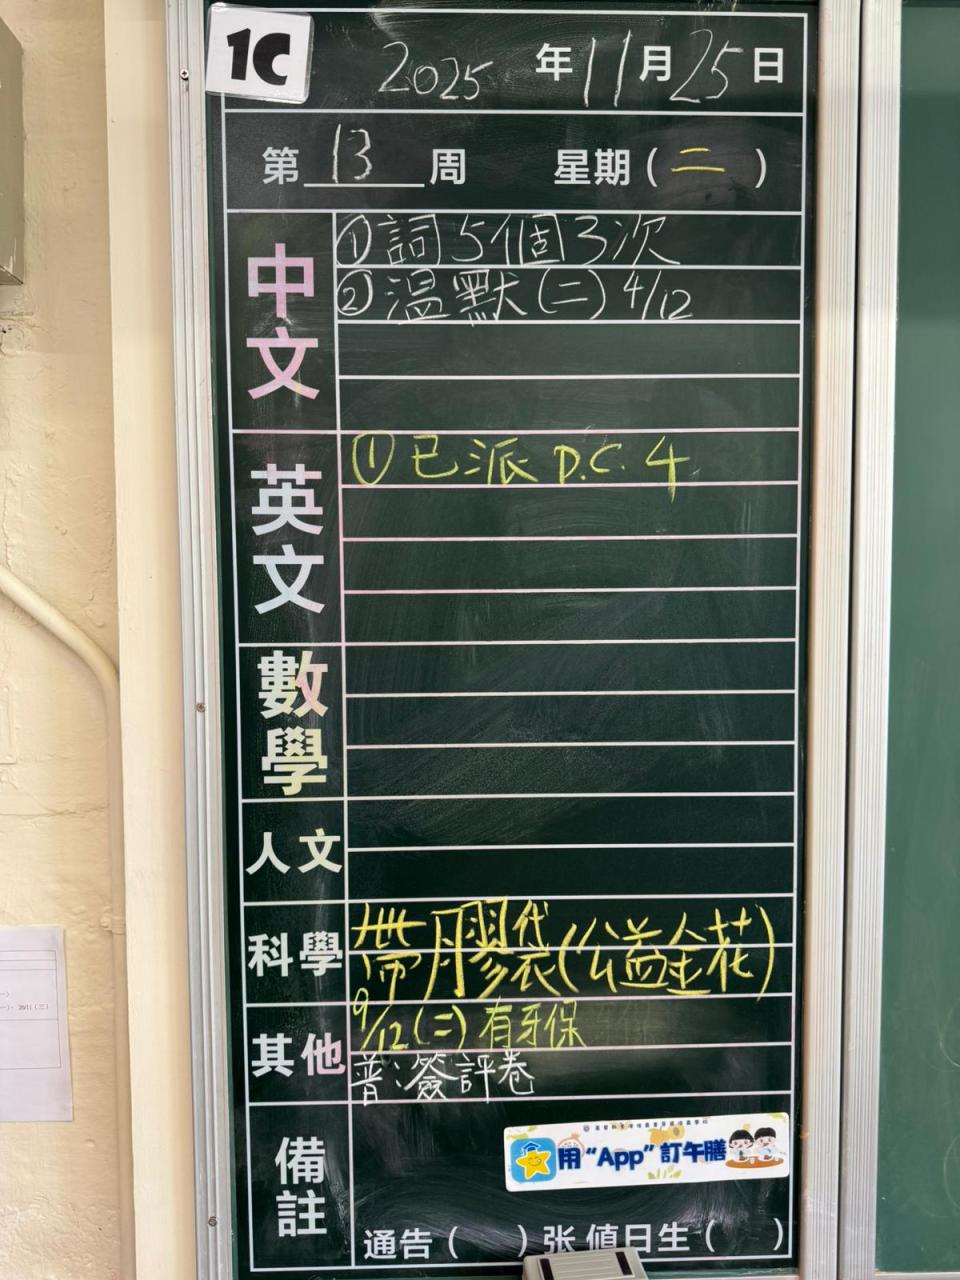 1C
2025年11月25日
第13周 星期(二)
中文
①詞5個3次
②溫默(二)4/12
英文
①已派 D.C. 4
數學
人文
科學
帶膠袋(公益金花)
其他
9/12(二)有牙保
普:簽評卷
備註
用“App”訂午膳
通告( )張 值日生( )